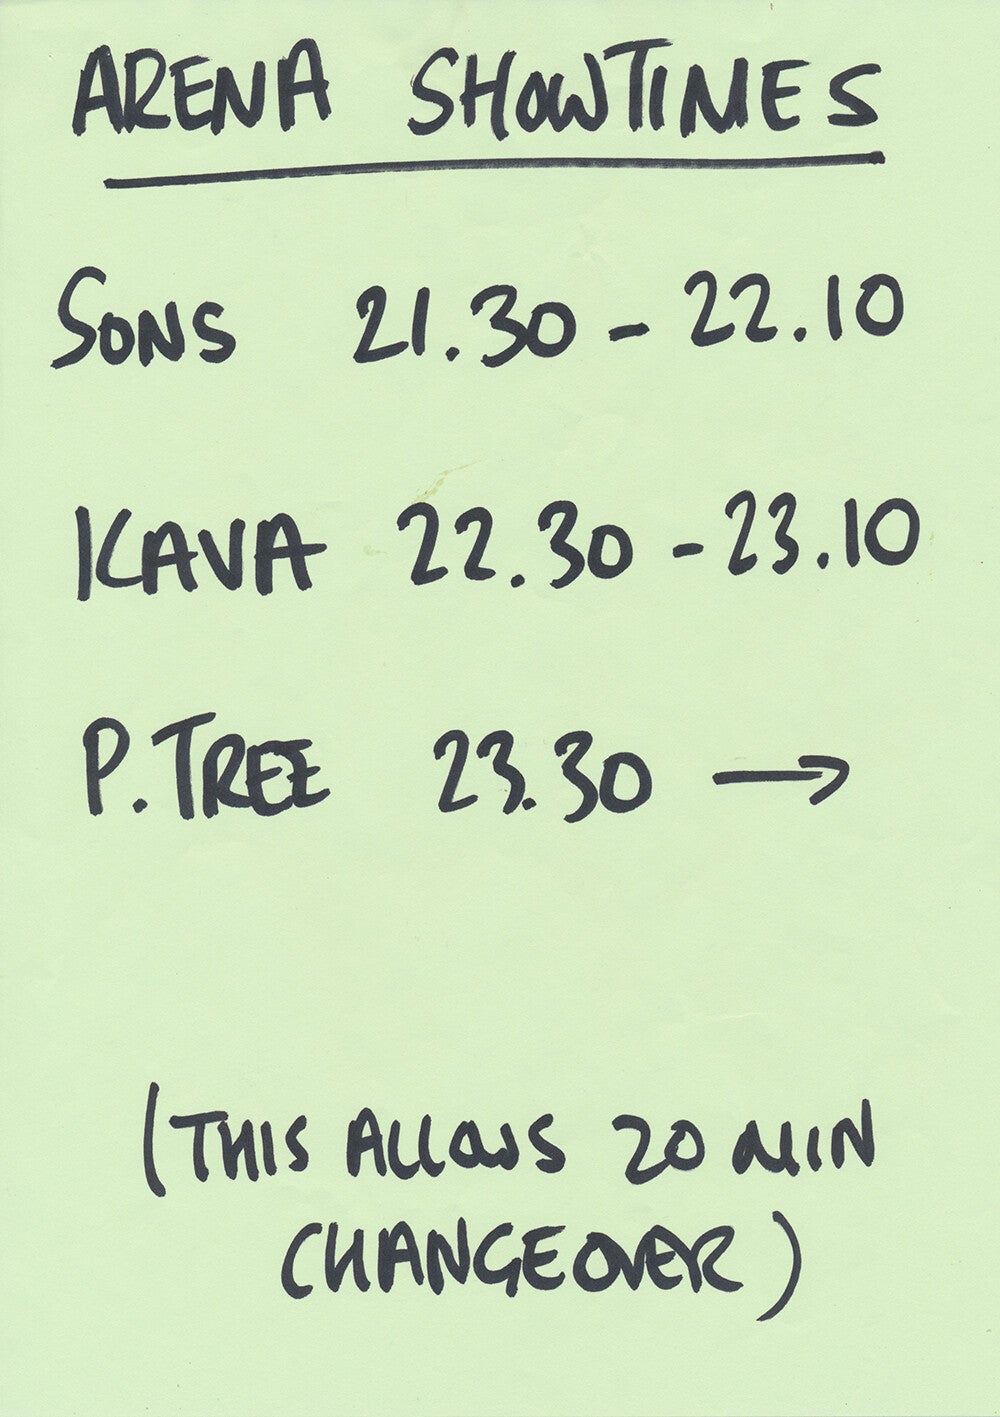 ARENA SHOWTIMES
SONS 21.30 - 22.10
KAVA 22.30 - 23.10
P.TREE 23.30 →
(THIS ALLOWS 20 MIN
CHANGEOVER)